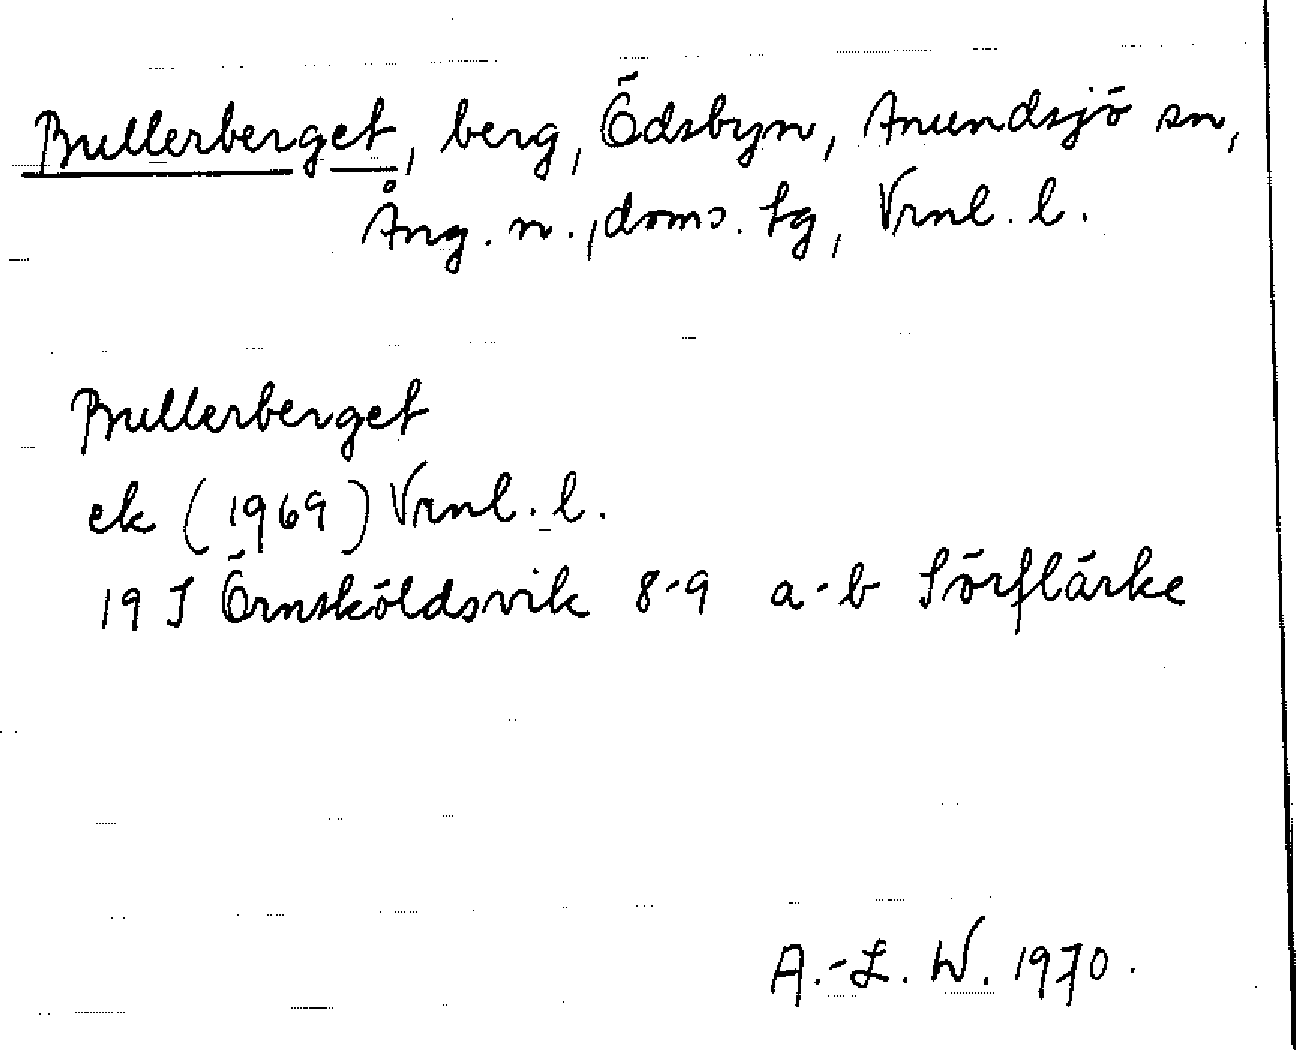 Bullerberget, berg, Ödsbyn, Anundsjö sn,
Ång. n., doms. tg, Vrnl. l.
Bullerberget
ek (1969) Vrnl. l.
19 J Örnsköldsvik 8-9 a-b Sörflärke
A.-L. W. 1970.